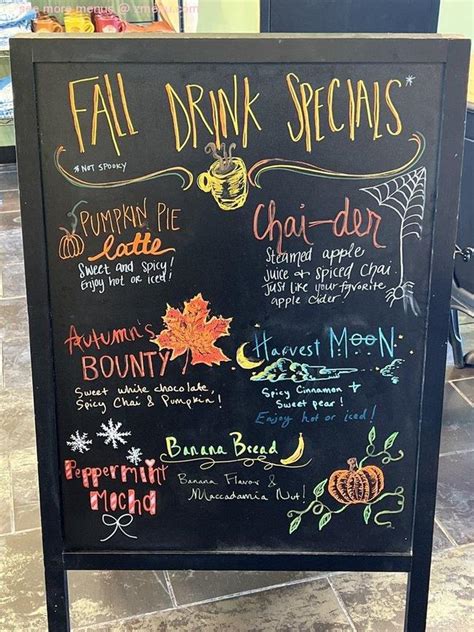 see more menus @ zmenu.com
FALL DRINK SPECIALS*
*NOT SPOOKY
PUMPKIN PIE
latte
Sweet and spicy!
Enjoy hot or iced!
Chai-der
Steamed apple
juice & spiced chai.
Just like your favorite
apple cider!
Autumn's
BOUNTY
Sweet white chocolate,
Spicy Chai & Pumpkin!
Harvest MOON
Spicy Cinnamon +
Sweet pear!
Enjoy hot or iced!
Peppermint
Mocha
Banana Bread
Banana Flavor &
Maccadamia Nut!